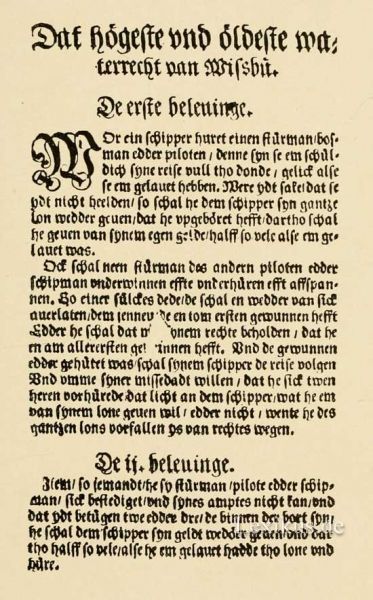 Dat högeste vnd öldeste wa⸗
terrecht van Wißbü.
De erste beleuinge.
WOr ein schipper huret einen stürman/bos⸗
man edder piloten/ denne syn se em schül⸗
dich syne reise vull tho donde/ gelick alse
se em gelauet hebben. Were ydt sake/dat se
ydt nicht heelden/ so schal he dem schipper syn gantze
lon wedder geuen/dat he vpgeböret hefft/dartho schal
he geuen van synem egen gelde/halff so vele alse em ge⸗
lauet was.
Ock schal neen stürman des andern piloten edder
schipman vnderwinnen effte vnderhüren efft affspan⸗
nen. So einer sülckes dede/de schal en wedder van sick
auerlaten/dem jennen de en tom ersten gewunnen hefft
Edder he schal dat synem rechte beholden/ dat he
en am allerersten gewinnen hefft. Vnd de gewunnen
edder gehüret was/schal synem schipper de reise volgen
Vnd vmme syner missedadt willen/ dat he sick twen
heren vorhürede dat licht an dem schipper/wat he em
van synem lone geuen wil/ edder nicht/ wente he des
gantzen lons vorfallen ys van rechtes wegen.
De ij. beleuinge.
Item/ so jemandt/he sy stürman/pilote edder schip⸗
man/ sick bestediget/vnd synes amptes nicht kan/vnd
dat ydt betügen twe edder dre/de binnen der bort syn/
he schal dem schipper syn geldt wedder geuen/vnd dar
tho halff so vele/alse he em gelauet hadde tho lone vnd
hüre.
Lexikus.de